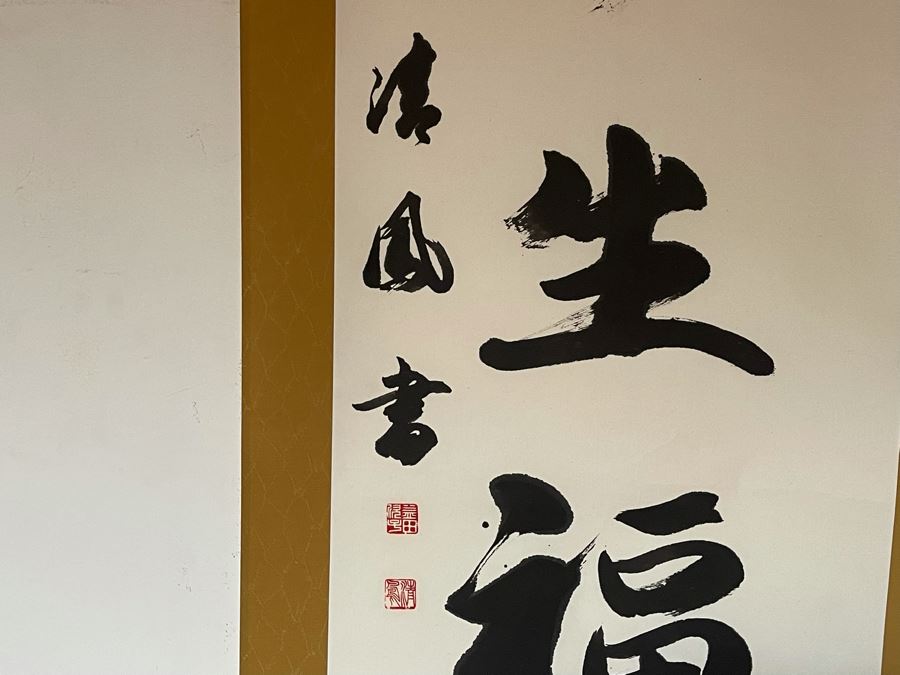 生福
清鳳書